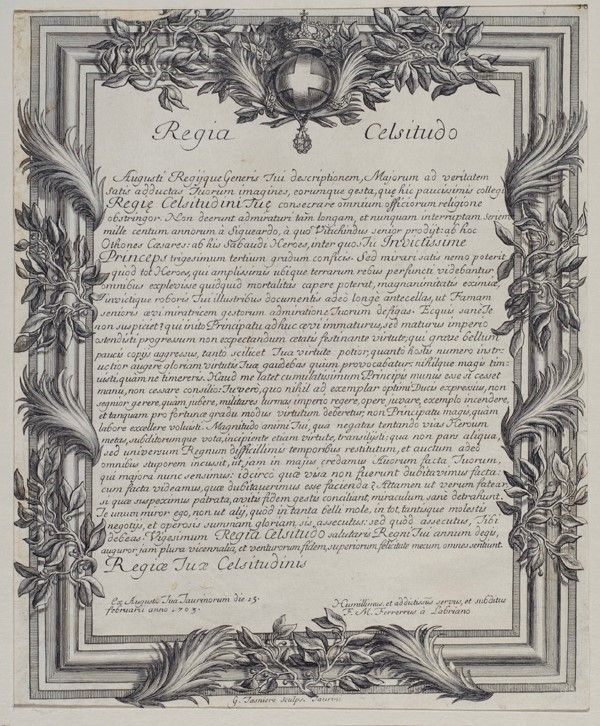 38
Regia Celsitudo
Augusti Regijque Generis Tui descriptionem, Majorum ad veritatem
satis adductas Tuorum imagines, eorumque gesta, quæ hic paucissimis collegi
Regiæ Celsitudini Tuæ consecrare omnium officiorum religione
obstringor. Non deerunt admiraturi tàm longam, et nunquam interruptam seriem
mille centum annorum à Sigueardo, à quo Vitichindus senior prodijt: ab hoc
Othones Cæsares: ab his Sabaudi Heroes, inter quos Tu Invictissime
Princeps trigesimum tertium gradum conficis. Sed mirari satis nemo poterit
quod tot Heroes, qui amplissimis ubique terrarum rebus perfuncti videbantur
omnibus explevisse quidquid mortalitas capere poterat, magnanimitatis eximiæ,
invictique roboris Tui illustribus documentis adeò longè antecellas, ut Famam
senioris ævi miratricem gestorum admiratione Tuorum defigas. Ecquis sanè Te
non suspiciet? qui inito Principatu adhuc ævi immaturus, sed maturus imperio
ostendisti progressum non expectandum ætatis festinante virtute; qui grave bellum
paucis copijs aggressus, tanto scilicet Tua virtute potior, quantò hostis numero instru-
ctior augere gloriam virtutis Tuæ gaudebas quùm provocabatur; nihilque magis tim-
uisti, quàm ne timereris. Haud me latet cumulatissimum Principis munus esse si cesset
manu, non cessare consilio: Tu verò, quo nihil ad exemplar optimi Ducis expressius, non
segnior gerere, quàm jubere, militares turmas imperio regere, opere juvare, exemplo incendere,
et tanquam pro fortunæ gradu modus virtutum deberetur, non Principatu magis, quàm
labore excellere voluisti. Magnitudo animi Tui, qua negatas tentando vias Heroum
metas, subditorumque vota, incipiente etiam virtute, transilijsti; qua non pars aliqua,
sed universum Regnum difficillimis temporibus restitutum, et auctum adeò
omnibus stuporem incussit, ut jam in majus credamus Avorum facta Tuorum,
qui majora nunc sensimus: idcircò quæ visa non fuerunt dubitavimus facta:
cum facta videamus, quæ dubitaverimus esse facienda? Attamen ut verum fatear
si quæ suspeximus patrata, avitis fidem gestis conciliant, miraculum sanè detrahunt.
Te unum miror ego, non ut alij, quòd in tanta belli mole, in tot, tantisque molestis
negotijs, et operosis summam gloriam sis assecutus: sed quòd assecutus, Tibi
debeas. Vigesimum Regia Celsitudo salutaris Regni Tui annum degis,
auguror jam plura vicennalia, et venturorum fidem, superiorum felicitate mecum omnes sentiunt.
Regiæ Tuæ Celsitudinis
Ex Augusta Tua Taurinorum die 15.
februarii anno 1703.
Humillimus, et addictissimus servus, et subditus
F. M. Ferrerius à Labriano
G. Tasniere Sculps. Taurini